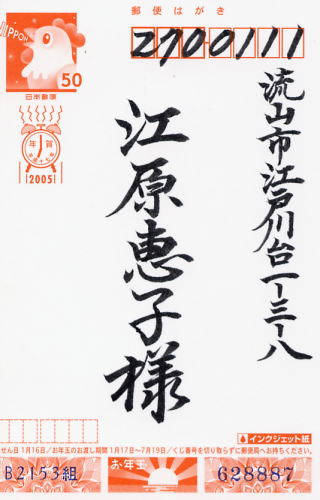 郵便はがき
NIPPON
50
日本郵便
年賀
平成十七年
2005
2700111
流山市江戸川台一-三-八
江原恵子様
インクジェット紙
せん日 1月16日／お年玉のお渡し期間 1月17日〜7月19日／くじ番号を切り取らずに郵便局へお持ちください。
B2153組
お年玉
628887